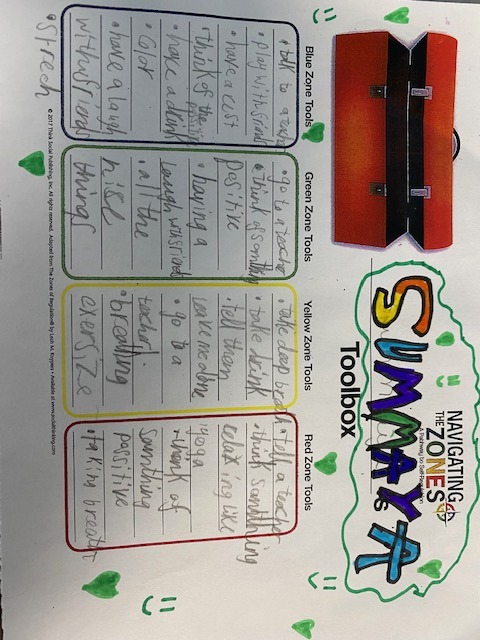 NAVIGATING
THE ZONES
A Pathway to Self-Regulation
SUMMAYA's
Toolbox
Blue Zone Tools
• talk to a teacher
• play with friends
• have a rest
• think of the positive
• have a drink
• color
• have a laugh
with friends
• Strech
Green Zone Tools
• go to a teacher
• think of somthing
positive
• having a
laugh with friends
• all the
nise
things
Yellow Zone Tools
• take deep breath
• take drink
• tell them
leave me alone
• go to a
teacher
• breathing
exersize
Red Zone Tools
• tell a teacher
• think somthing
relaxing like
yoga
• think of
somthing
possitive
• taking breath
© 2017 Think Social Publishing, Inc. All rights reserved. Adapted from The Zones of Regulation® by Leah M. Kuypers • Available at www.socialthinking.com